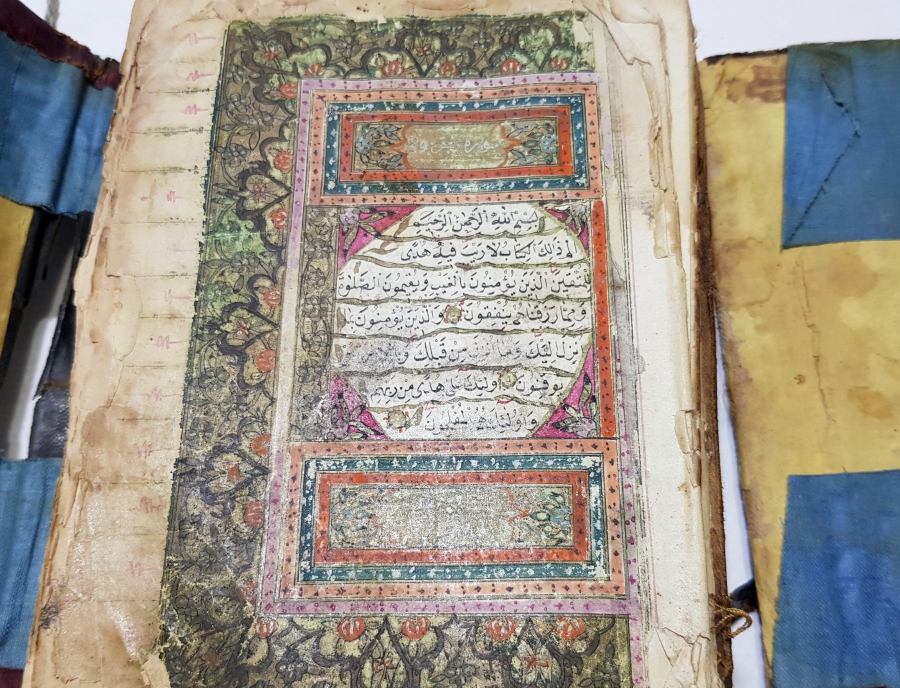 بسم الله الرحمن الرحيم
الم ذلك الكتاب لا ريب فيه هدى
للمتقين الذين يؤمنون بالغيب ويقيمون الصلوة
ومما رزقناهم ينفقون والذين يؤمنون بما
انزل اليك وما انزل من قبلك
يوقنون اولئك على هدى من ربهم
واولئك هم المفلحون